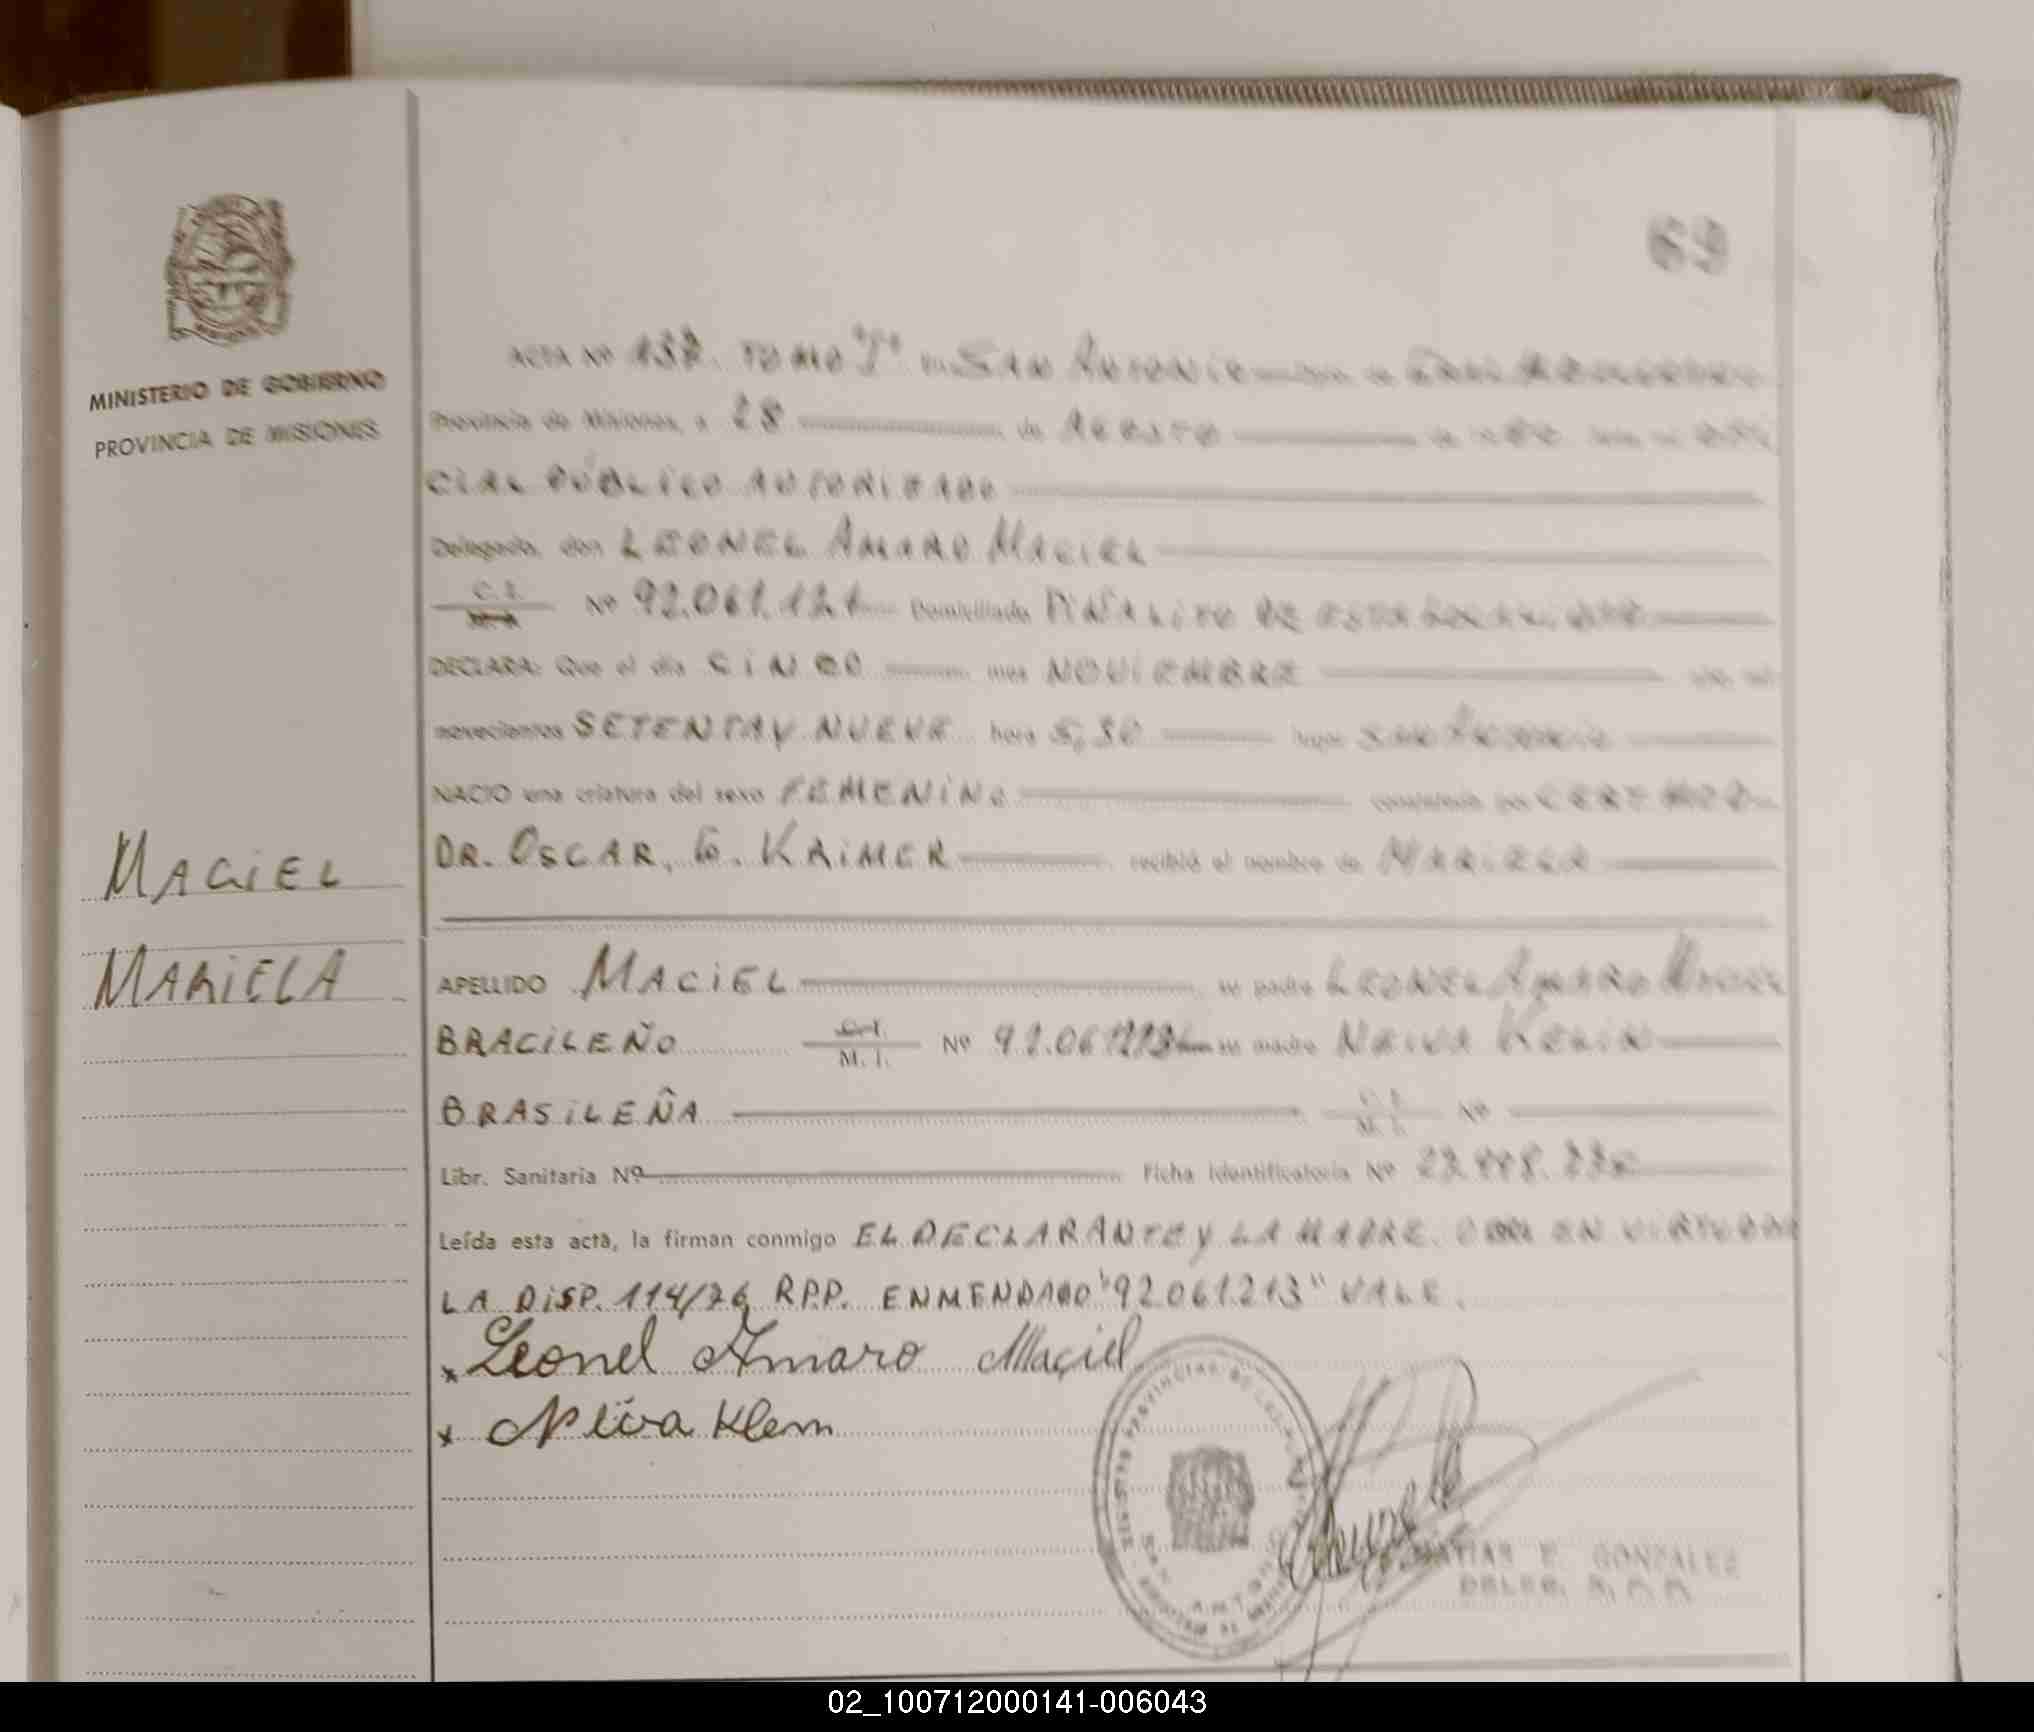 69
MINISTERIO DE GOBIERNO
PROVINCIA DE MISIONES
ACTA Nº 137. TOMO "I" en SAN ANTONIO
Provincia de Misiones, a 28 de AGOSTO de
CIAL PÚBLICO AUTORIZADO
Delegado, don LEONEL AMARO MACIEL
C. I. Nº 92.061. Domiciliado PIÑALITO DE ESTA LOCALIDAD
DECLARA: Que el día CINCO mes NOVIEMBRE año mil
novecientos SETENTA Y NUEVE hora 5,30 lugar SAN ANTONIO
NACIO una criatura del sexo FEMENINO CERT MED.
DR. OSCAR, G. KRIMER recibió el nombre de MARIELA
MACIEL
MARIELA
APELLIDO MACIEL su padre LEONEL AMARO MACIEL
BRACILEÑO C. I. M. I. Nº su madre
BRASILEÑA C. I. M. I. Nº
Libr. Sanitaria Nº Ficha Identificatoria Nº
Leída esta acta, la firman conmigo EL DECLARANTE Y LA MADRE. EN VIRTUD DE
LA DISP. 114/76 R.P.P. ENMENDADO "92061213" VALE.
x Leonel Amaro Maciel
x Neiva Klem
SAN ANTONIO
MATIAS E. GONZALEZ
02_100712000141-006043